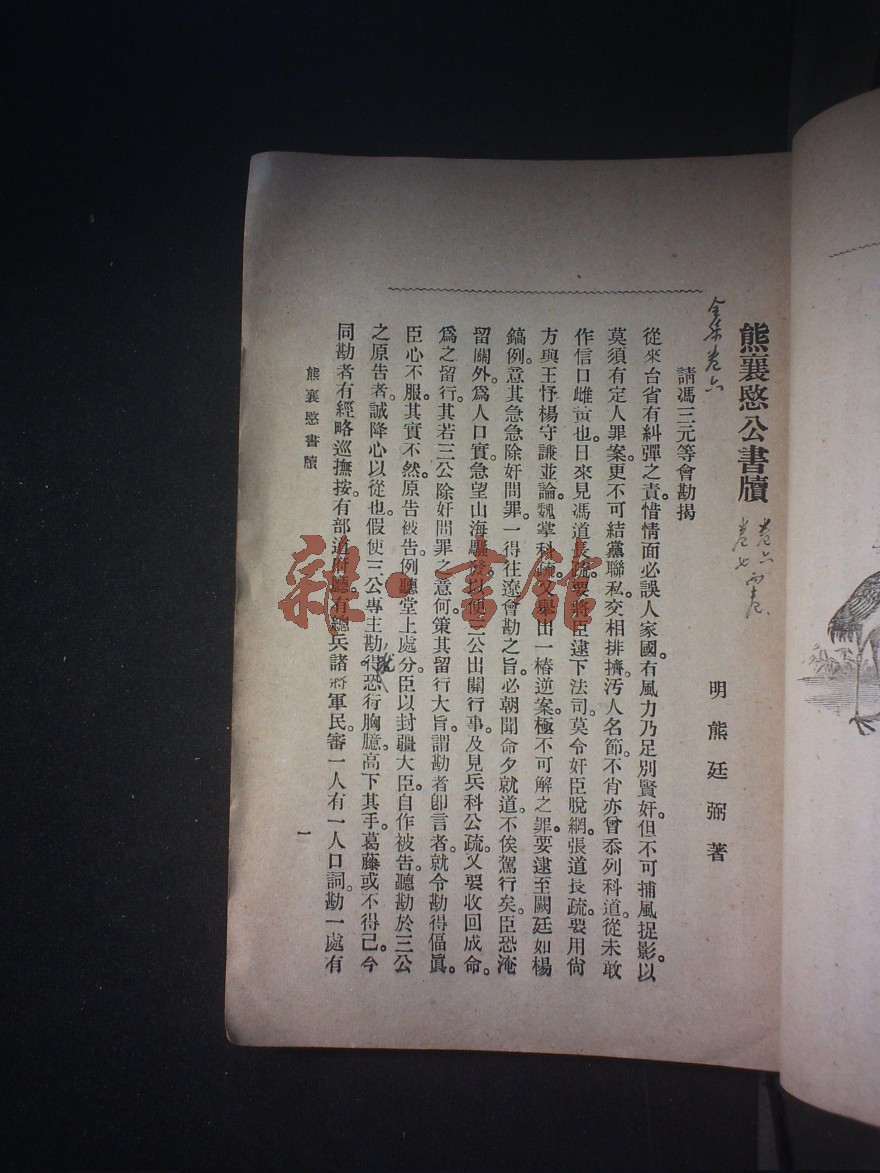 熊襄愍公書牘
全集卷六
卷六
卷七
明熊廷弼著
請馮三元等會勘揭
從來台省有糾彈之責。惜情面必誤人家國。有風力乃足別賢奸。但不可捕風捉影。以
莫須有定人罪案。更不可結黨聯私。交相排擠。汚人名節。不肯亦曾忝列科道。從未敢
作信口雌黃也。日來見馮道長疏。要將臣逮下法司。莫令奸臣脫網。張道長疏。要用尙
方與王㤉楊守謙並論。魏掌科疏。又舉出一樁逆案。極不可解之罪。要逮至闕廷如楊
鎬例。意其急急除奸問罪。一得往遼會勘之旨。必朝聞命夕就道。不俟駕行矣。臣恐淹
留關外。爲人口實。急望山海驅以便三公出關行事。及見兵科公疏。又要收回成命。
爲之留行。其若三公除奸問罪之意何。策其留行大旨。謂勘者卽言者。就令勘得偪眞。
臣心不服。其實不然。原告被告。例聽堂上處分。臣以封疆大臣。自作被告。聽勘於三公
之原告者。誠降心以從也。假使三公專主勘得。恐行胸臆。高下其手。葛藤或不得已。今
同勘者有經略巡撫按。有部道府廳。有總兵諸將軍民。審一人有一人口詞。勘一處有
熊襄愍書牘
一
雜書館